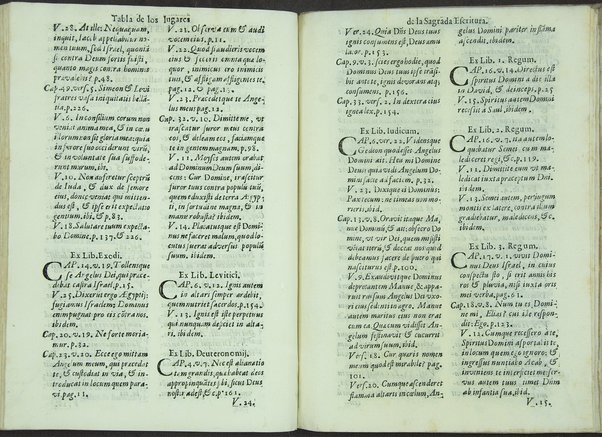 Tabla de los lugares
V. 28. At ille: Nequaquam,
inquit, Iacob appellabitur no-
men tuum, sed Israel, quoniam si
contra Deum fortis fuisti,
quanto magis contra homines
prævalebis? p.48.
Cap. 49. vers. 5. Simeon & Levi
fratres vasa iniquitatis bella-
tia. p.226.
V. 6. In consilium eorum non
veniat anima mea, & in cœtu
illorum non sit gloria mea: quia
in furore suo occiderunt virũ,
& in voluntate sua suffode-
runt murum. ibi.
V. 10. Non auferetur sceptrũ
de Iuda, & dux de femore
eius, donec veniat qui mitten-
dus est, & ipse erit expectatio
gentium. ibi. & p.83.
V. 18. Salutare tuum expecta-
bo Domine. p.137. & 226.
Ex Lib. Exodi.
CAP. 14. v. 19. Tollensque
se Angelus Dei, qui præce-
debat castra Israel. p.15.
V. 25. Dixerut ergo Ægyptij:
fugiamus Israelem: Dominus
enim pugnat pro eis contra nos.
ibidem.
Cap. 20. v. 19. Ne forte moria-
mur. p.82.
Cap. 23. v. 20. Ecce ego mittam
Angelum meum, qui præcedat
te, & custodiat in via, & in-
troducat in locum quem para-
vi. pag. 11.
V. 21. Observa eum & audi
vocem eius. p. 11.
V. 22. Quod si audieris vocem
eius, & feceris omnia quæ lo-
quor, inimicus ero inimicis
tuis, & affligam affligentes te.
pag. 12.
V. 23. Præcedetque te Ange-
lus meus pag. 12.
Cap. 32. v. 10. Dimitte me, vt
irascatur furor meus contra
eos, & deleam eos, faciamque
te in gentem magnam. p.98.
V. 11. Moyses autem orabat
ad Dominum Deum suum, di-
cens: Cur Domine, irascitur
furor tuus contra populũ tuũ,
quem eduxisti de terra Ægyp-
ti, in fortitudine magna, & in
manu robusta? ibidem.
V. 14. Placatusque est Domi-
nus ne faceret malum, quod lo-
cutus fuerat adversus populũ
suum. ibidem.
Ex Lib. Levitici.
CAP. 6. v. 12. Ignis autem
in altari semper ardebit,
quem nutriet sacerdos. p.154.
V. 13. Ignis est iste perpetuus
qui nunquam deficiet in alta-
ri. ibidem.
Ex Lib. Deuteronomij.
CAP. 4. v. 7. Nec est alia natio
tam grandis, quæ habeat deos
appropinquates sibi, sicut Deus
noster adest &c. p. 161.
V. 24.
de la Sagrada Escritura.
Ver. 24. Quia Dñs Deus tuus
ignis consumens est, Deus æmu
lator. p.153.
Cap. 9. v. 3. scies ergo hodie, quod
Dominus Deus tuus ipse trãsi-
bit ante te, ignis devorans atq;
consumens. p. 156.
Cap. 33. vers. 2. In dextera eius
ignea lex. p.154.
Ex Lib. Iudicum.
CAP. 6. vers. 22. Vidensque
Gedeon quod esset Angelus
Domini ait. Heu mi Domine
Deus: quia vidi Angelum Do-
mini facie ad faciem. p.32.
V. 23. Dixitque ei Dominus:
Pax tecum: ne timeas non mo-
rieris. ibid.
Cap. 13. v. 8. Oravit itaque Ma-
nue Dominum & ait: obsecro Do
mine, vt vir Dei, quem misisti
veniat iterũ, & doceat nos quid
debeamus facere de puero qui
nasciturus est. p.100.
V. 9. Exaudivitque Dominus
deprecantem Manue, & appa-
ruit rursum Angelus Dei vxo-
ri eius sedenti in agro. Manue
autem maritus eius non erat
cum ea. Quæ cum vidisset An-
gelum festinavit & cucurrit
ad virum suum, ibid.
Vers. 18. Cur quæris nomen
meum quod est mirabile? pag.
101.
Vers. 20. Cumque ascenderet
flamma altaris in cœlum, An-
gelus Domini pariter in flamma
ascendit, ibidem.
Ex Lib. 1. Regum.
CAP. 16. v. 14. Directus est
Spiritus Domini a die illa
in David, & deinceps. p. 25
V. 15. Spiritus autem Domini
recessit a Saul, ibidem.
Ex Lib. 2. Regum.
CAP. 16. v. 10. ita autem lo-
quebatur Semei cum ma-
lediceret regi, &c. p. 119.
V. 11. Dimittite eum vt male-
dicat iuxta præceptum Dñi.
ibidem.
V. 13. Semei autem, per iugum
montis ex latere, contra illum
gradiebatur, maledicens, &c.
ibidem.
Ex Lib. 3. Regum.
CAP. 17. v. 1. vivit Domi-
nus Deus Israel, in cuius
conspectu sto, si erit annis his
ros, & pluvia, nisi iuxta oris
mei verba. pag. 61.
Cap. 18. v. 8. Num tu es Domi-
ne mi, Elias? Et Cui ille respon-
dit: Ego. p. 123.
V. 12. Cumque recessero a te,
Spiritus Domini asportabit te,
in locum quem ego ignoro: &
ingressus nuntiabo Acab, &
inveniens te interficiet me: ser-
vus autem tuus timet Dñm
ab infantia sua. ibid.
V. 15.